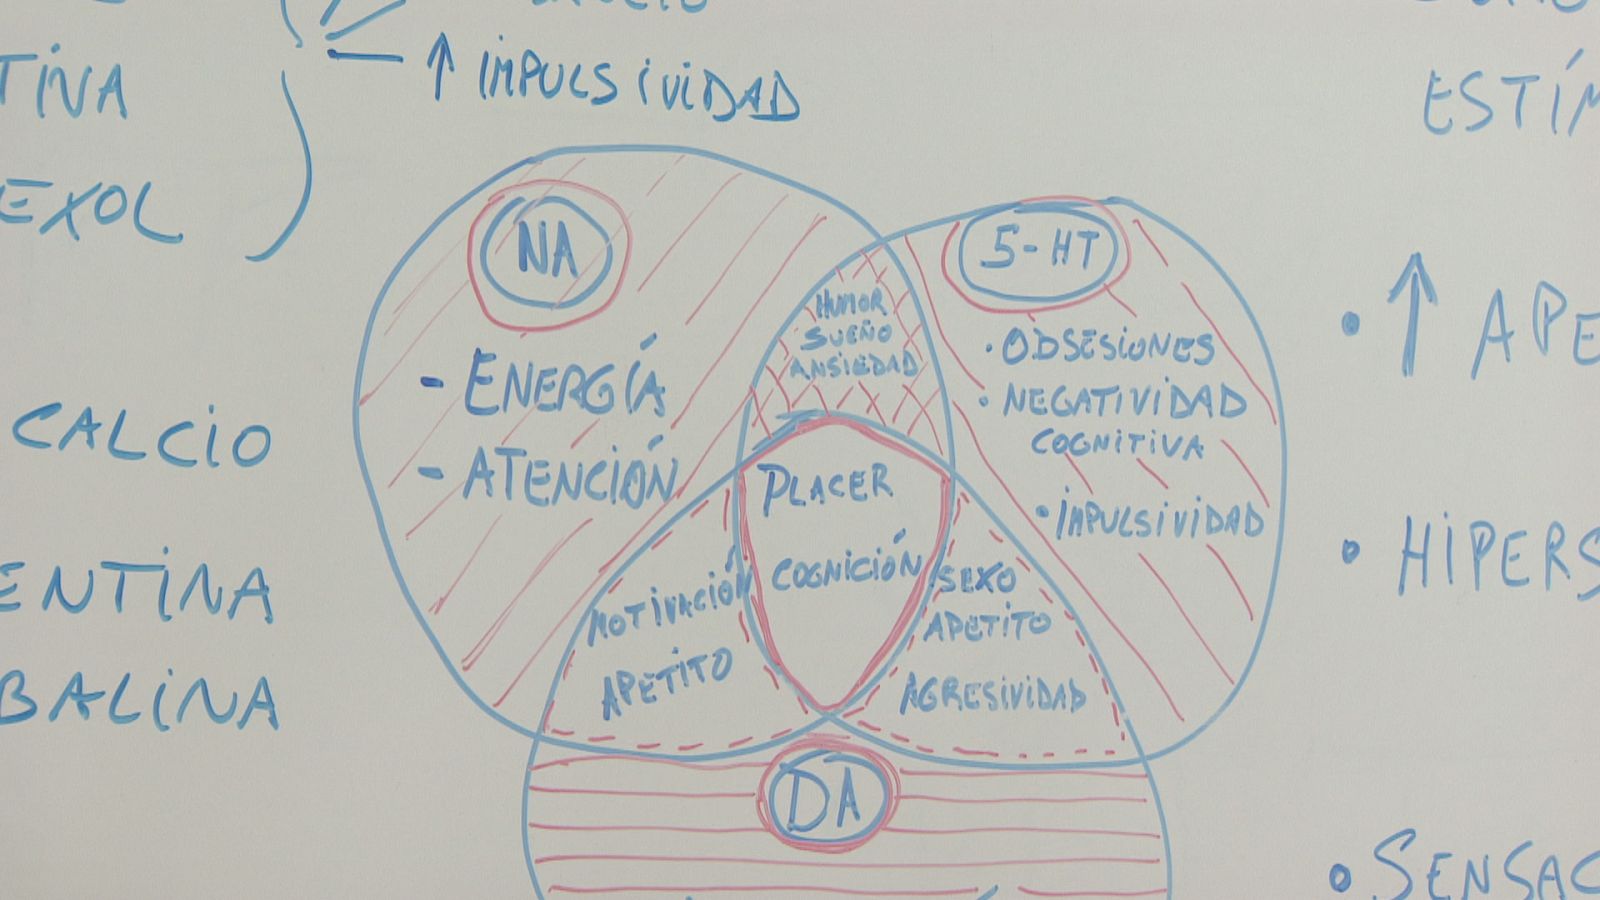 ↑ IMPULSIVIDAD
TINA
EXOL
CALCIO
ENTINA
BALINA
NA
- ENERGÍA
- ATENCIÓN
HUMOR
SUEÑO
ANSIEDAD
5-HT
· OBSESIONES
· NEGATIVIDAD
COGNITIVA
· IMPULSIVIDAD
PLACER
COGNICIÓN
MOTIVACIÓN
APETITO
SEXO
APETITO
AGRESIVIDAD
DA
ESTÍM
· ↑ APE
· HIPERS
· SENSAC